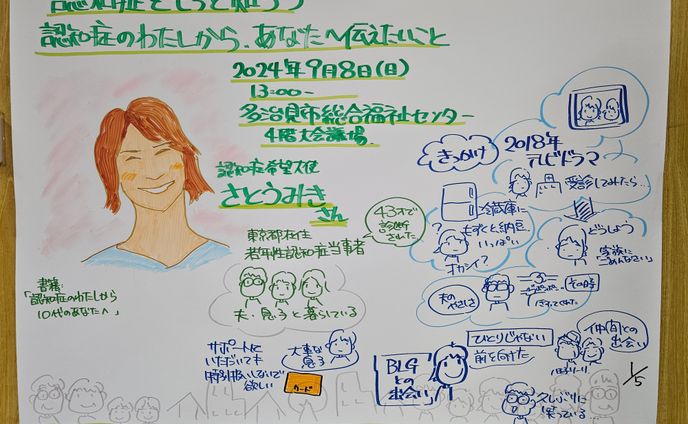 認知症をもっと知ろう
認知症のわたしから、あなたへ伝えたいこと
2024年9月8日(日)
13:00〜
多治見市総合福祉センター
4階大会議場
認知症希望大使
さとうみき
さん
東京都在住
若年性認知症当事者
43才で
診断
された
書籍
「認知症のわたしから
10代のあなたへ」
夫・息子と暮らしている
サポートに
いただいても
特別扱いしないで
欲しい
大事な
息子
カード
きっかけ
2018年
TVドラマ
受診してみたら…
冷蔵庫に
もずくと納豆
いっぱい
オカシイ?
どうしよう
家族に
「ごめんなさい」
夫の
やさしさ
その時
ひとりじゃない
前を向けた
BLG
との
出会い
仲間との
出会い
久しぶりに
笑っている…
1/5